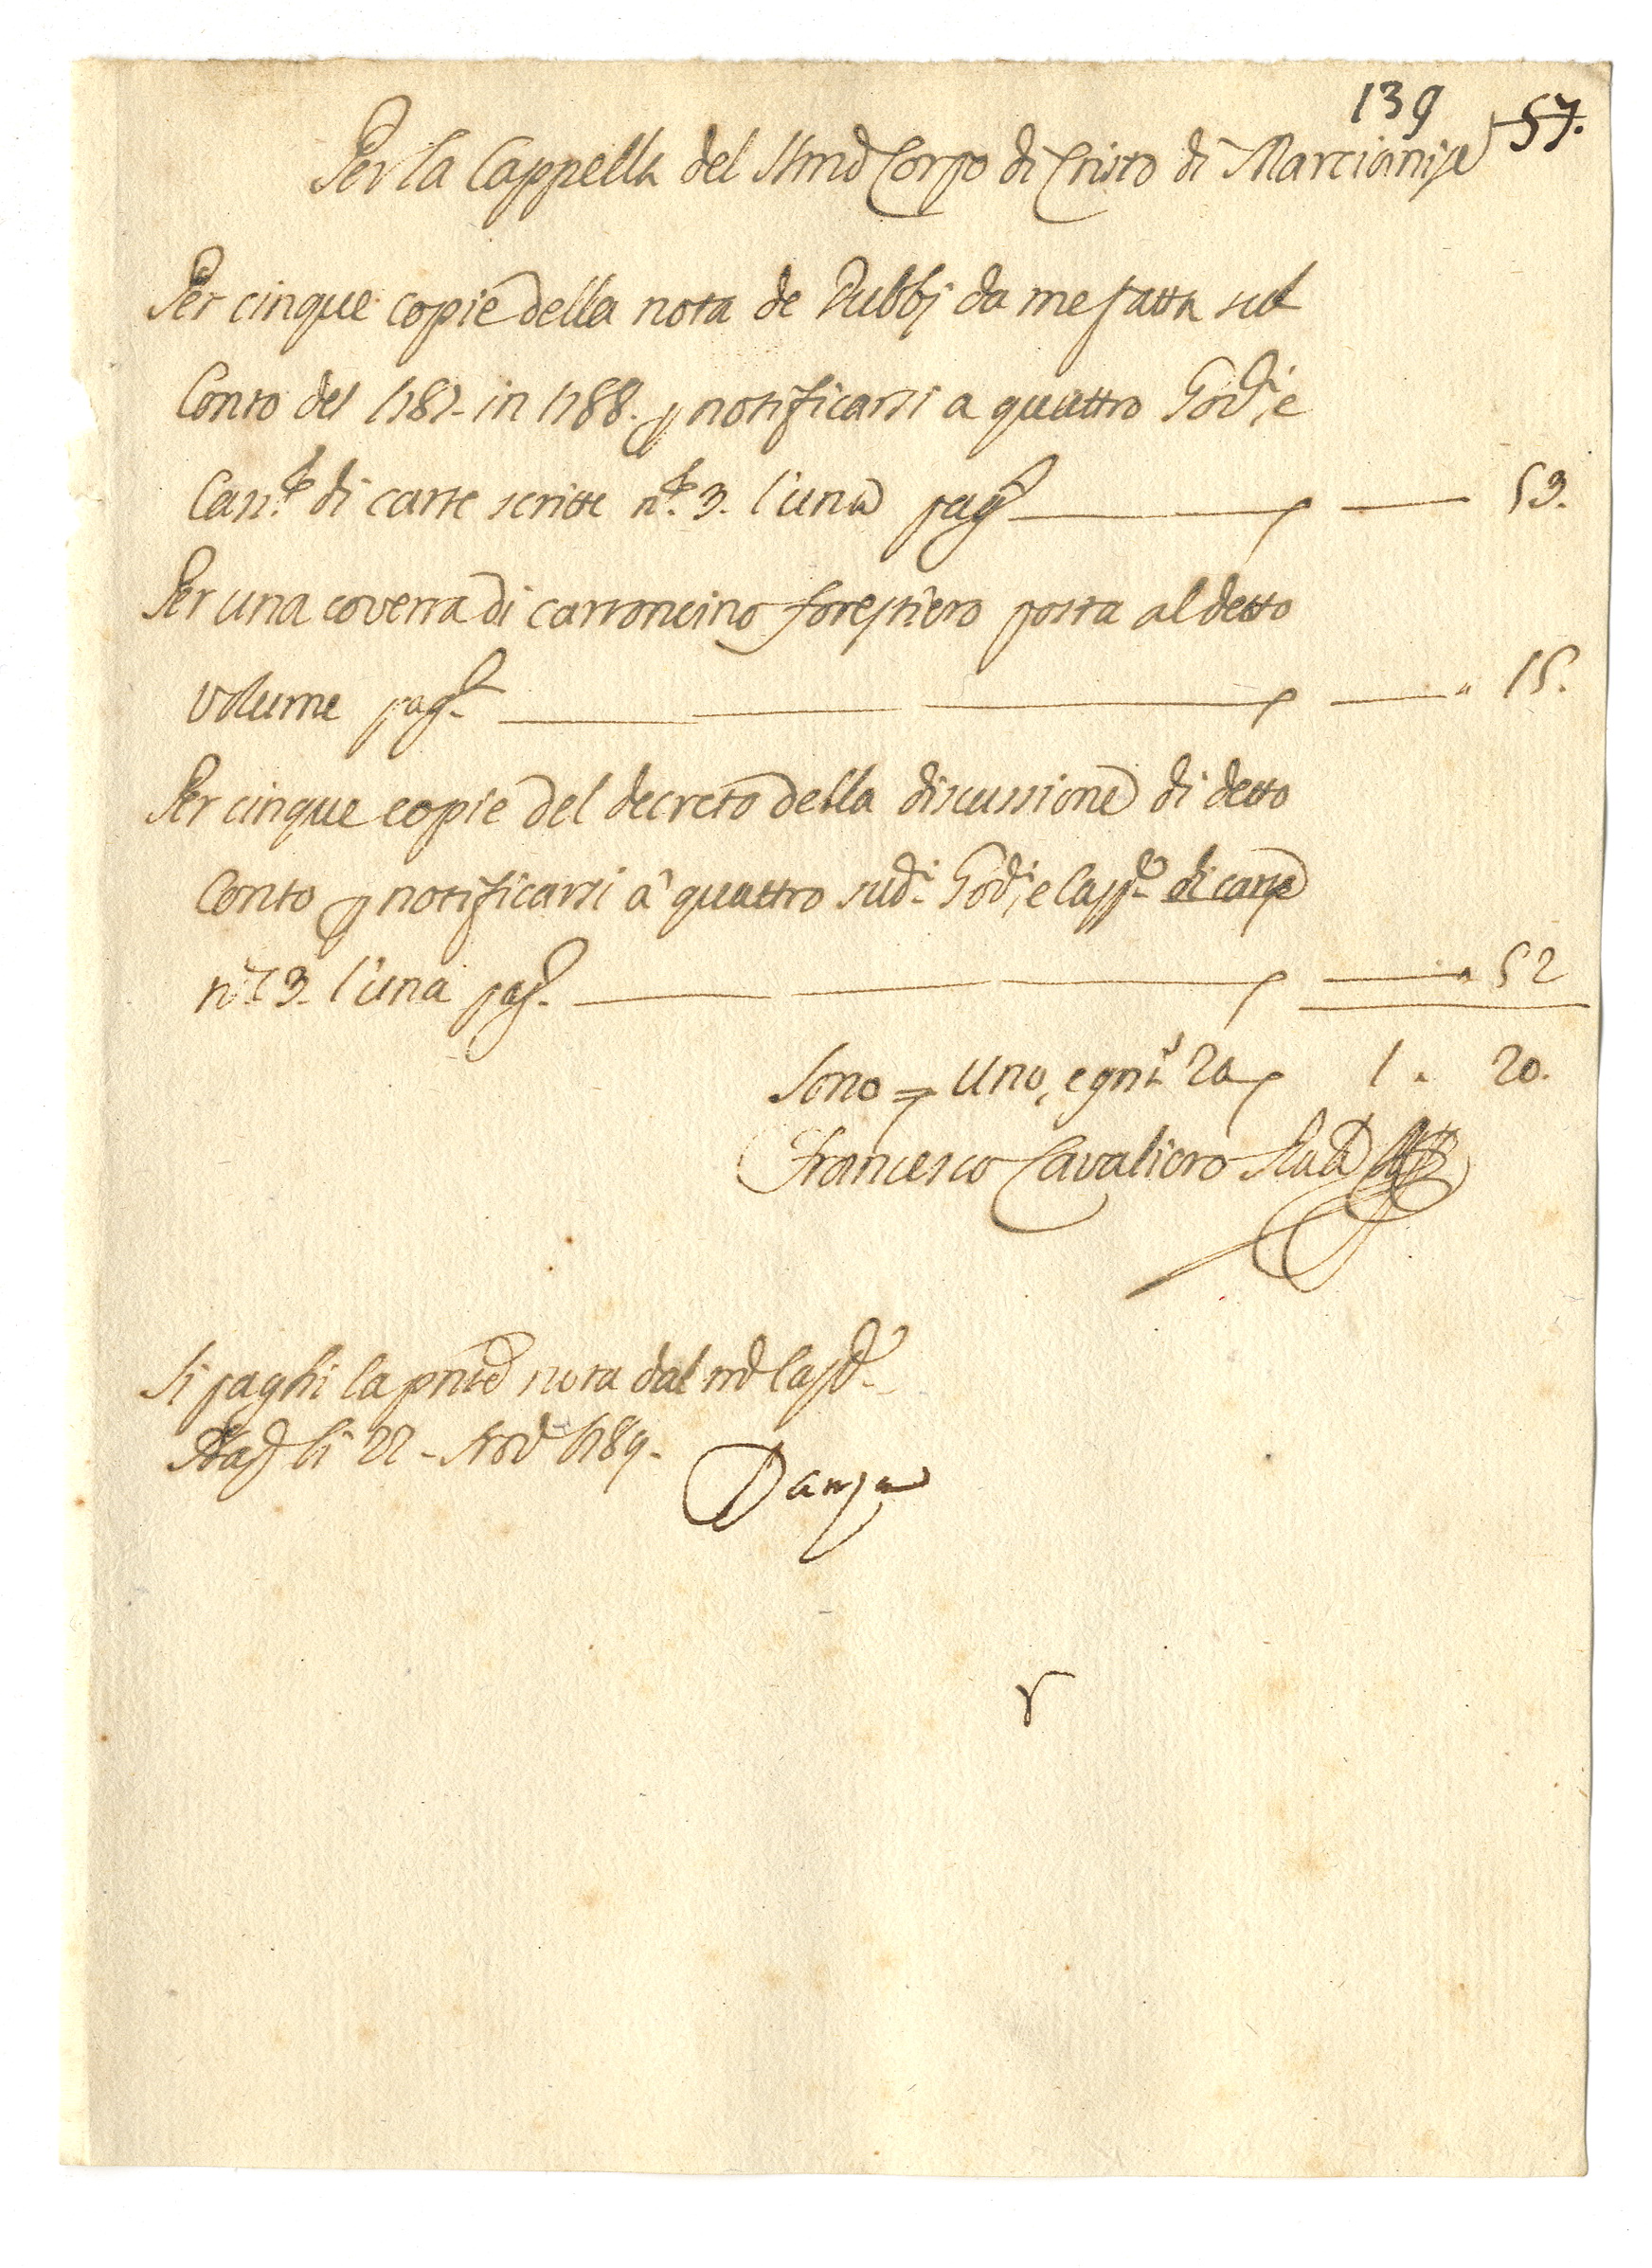 139 57.
Per la Cappella del SSmo Corpo di Cristo di Marcianise
Per cinque copie della nota de Dubbj da me fatta sul
Conto del 1787. in 1788. p notificarsi a quattro Gori, e
Cass.re di carte scritte n.o 3. l'una pag.
53.
Per una coverta di cartoncino forestiero posta al detto
volume pag.
" 15.
Per cinque copie del decreto della discussione di detto
Conto p notificarsi a' quattro sud.i Gori, e Cass.re di carte
n.o 3. l'una pag.
" 52
Sono = Uno, e gna 20
1 " 20.
Francesco Cavaliero
Si paghi la pnte nota dal mo Cass.re
li 22 - 1789.
Danza